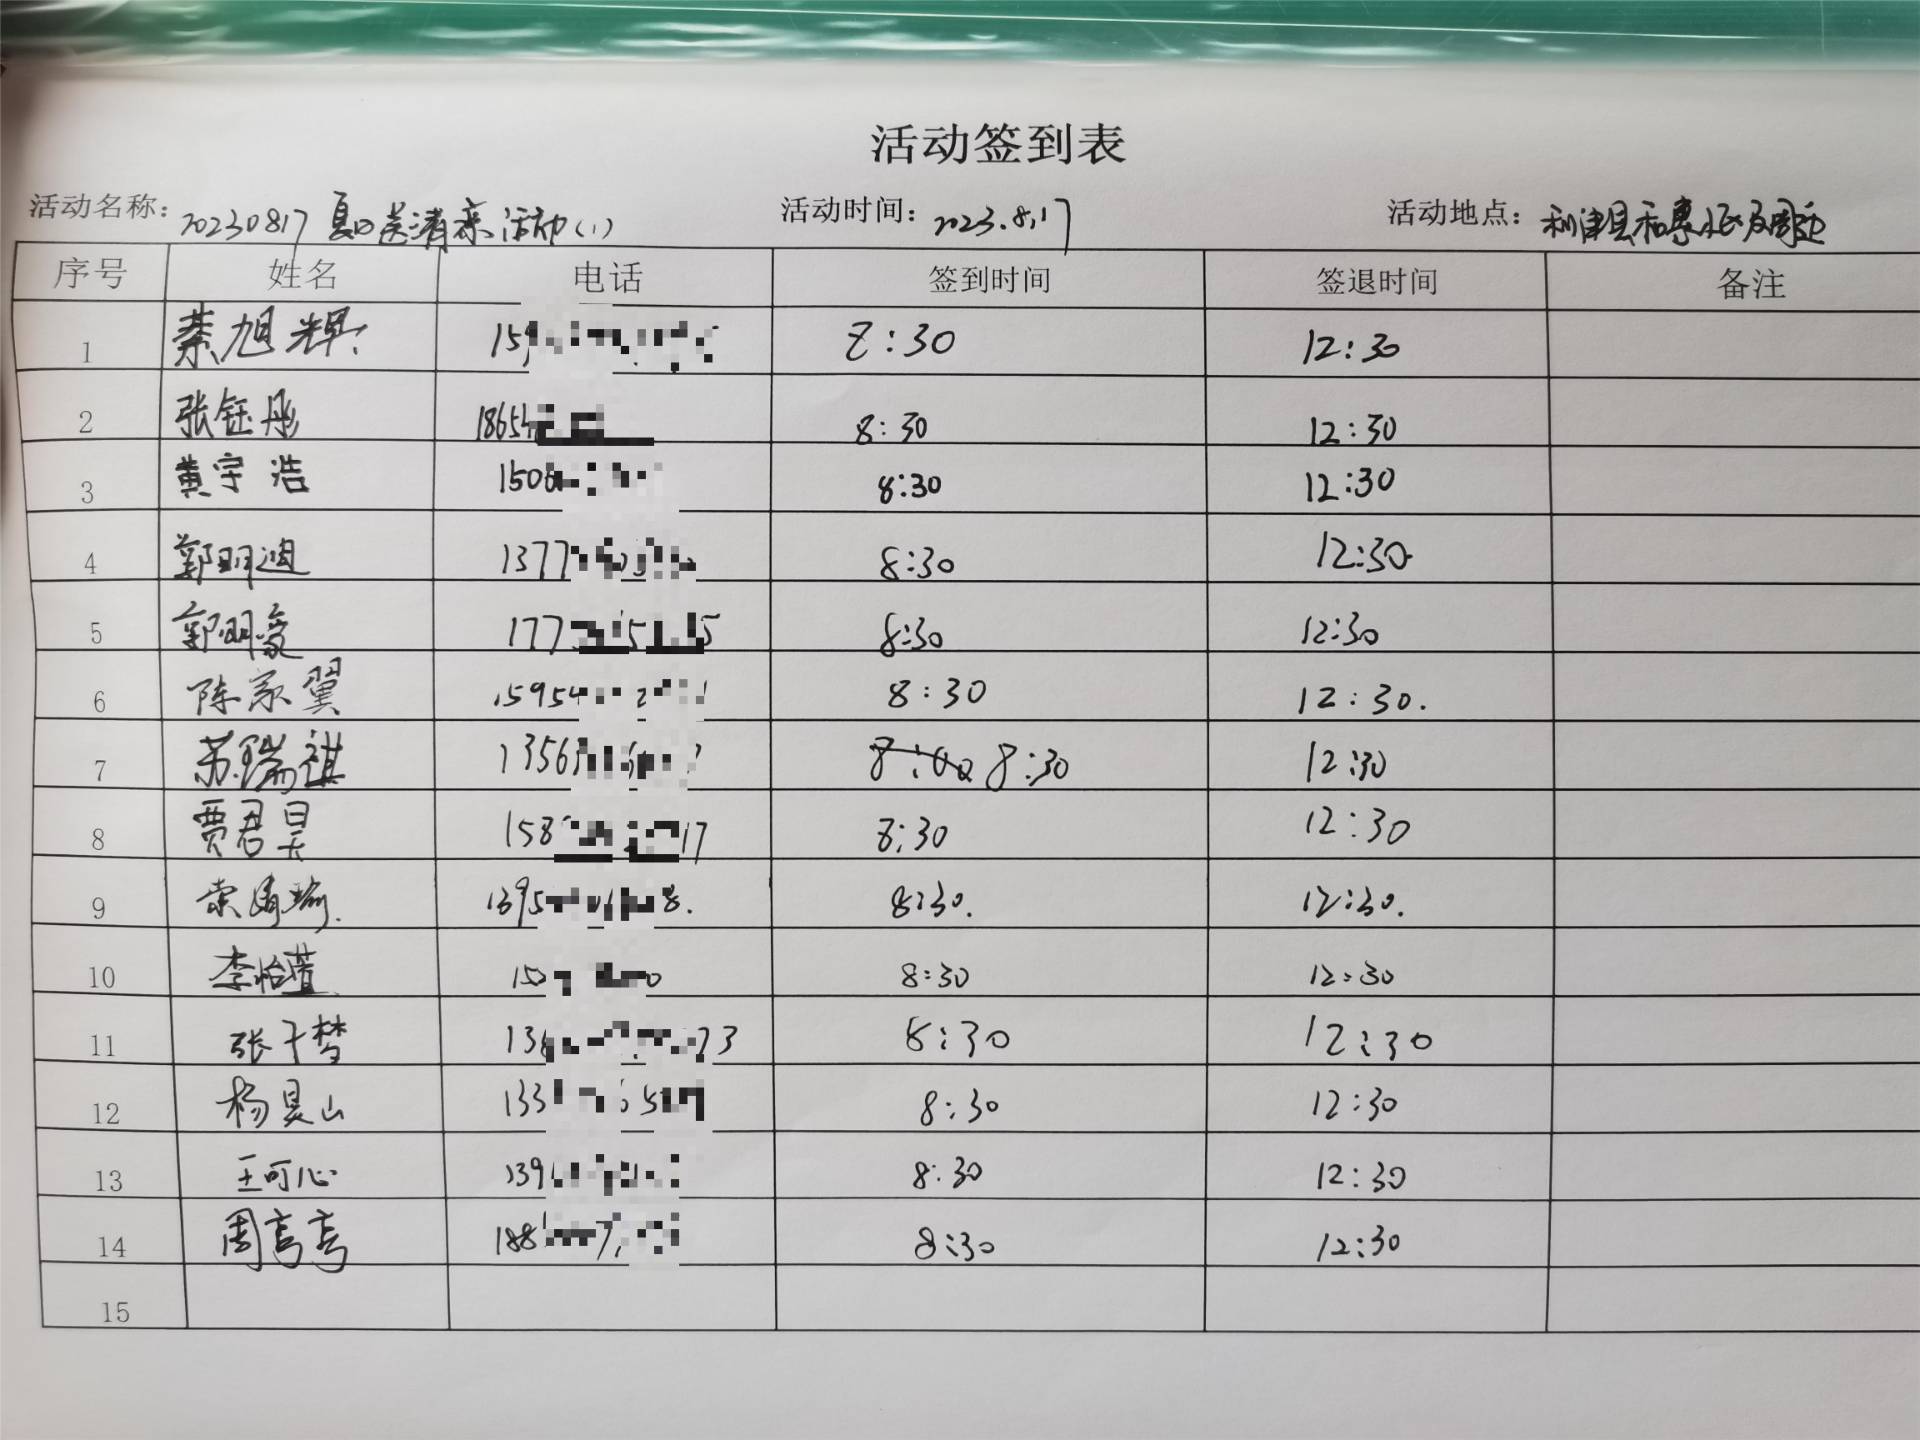 活动签到表
活动名称：20230817 夏日送清凉活动（1） 活动时间：2023.8.17 活动地点：利津县和
序号 姓名 电话 签到时间 签退时间 备注
1 旭辉 15 8:30 12:30
2 张钰彤 1865 8:30 12:30
3 黄宇浩 150 8:30 12:30
4 郭明迪 1377 8:30 12:30
5 郭明豪 177 8:30 12:30
6 陈家翼 1595 8:30 12:30.
7 苏瑞祺 1356 8:00 8:30 12:30
8 贾君昊 158 17 8:30 12:30
9 1395 8. 8:30. 12:30.
10 李怡萱 150 8:30 12:30
11 张千梦 13 73 8:30 12:30
12 杨昊山 133 8:30 12:30
13 王可心 139 8:30 12:30
14 周 188 8:30 12:30
15